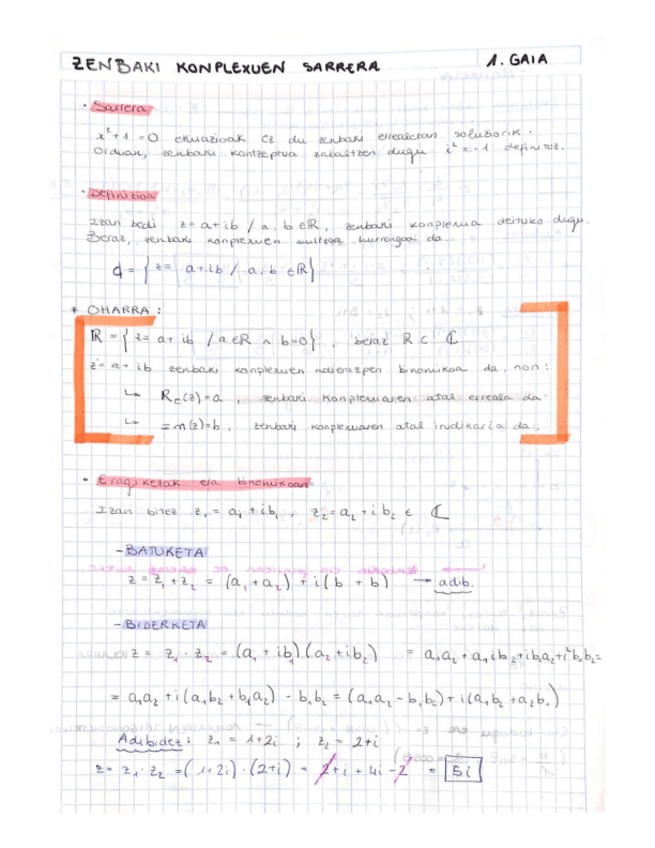 ZENBAKI KONPLEXUEN SARRERA 1. GAIA
• Sarrera
x²+1=0 ekuazioak ez du zenbaki errealetan soluziorik.
Orduan, zenbaki kontzeptua zabaltzen dugu i²=-1 definituz.
• Definizioa
Izan bedi z=a+ib / a, b ∈ℝ, zenbaki konplexua deituko dugu.
Beraz, zenbaki konplexuen multzoa hurrengoa da
ℂ = { z= a+ib / a, b ∈ℝ}
* OHARRA:
ℝ = { z= a+ ib / a ∈ℝ ∧ b=0}, beraz ℝ ⊂ ℂ
z= a+ ib zenbaki konplexuen adierazpen binomikoa da, non:
↳ Re(z)=a, zenbaki konplexuaren atal erreala da
↳ Im(z)=b, zenbaki konplexuaren atal irudikaria da.
• Eragiketak era binomikoan
Izan bitez z₁= a₁+ib₁, z₂=a₂+ib₂ ∈ ℂ
- BATUKETA
z= z₁+z₂ = (a₁+a₂)+i(b+b) → adib.
- BIDERKETA
z= z₁·z₂ = (a₁+ib₁)(a₂+ib₂) = a₁a₂+a₁ib₂+ib₁a₂+i²b₁b₂=
= a₁a₂+i(a₁b₂+b₁a₂) - b₁b₂ = (a₁a₂-b₁b₂)+i(a₁b₂+a₂b₁)
Adibidez: z₁ = 1+2i ; z₂ = 2+i
z= z₁·z₂ =(1+2i)·(2+i) = 2+i+4i-2 = 5i